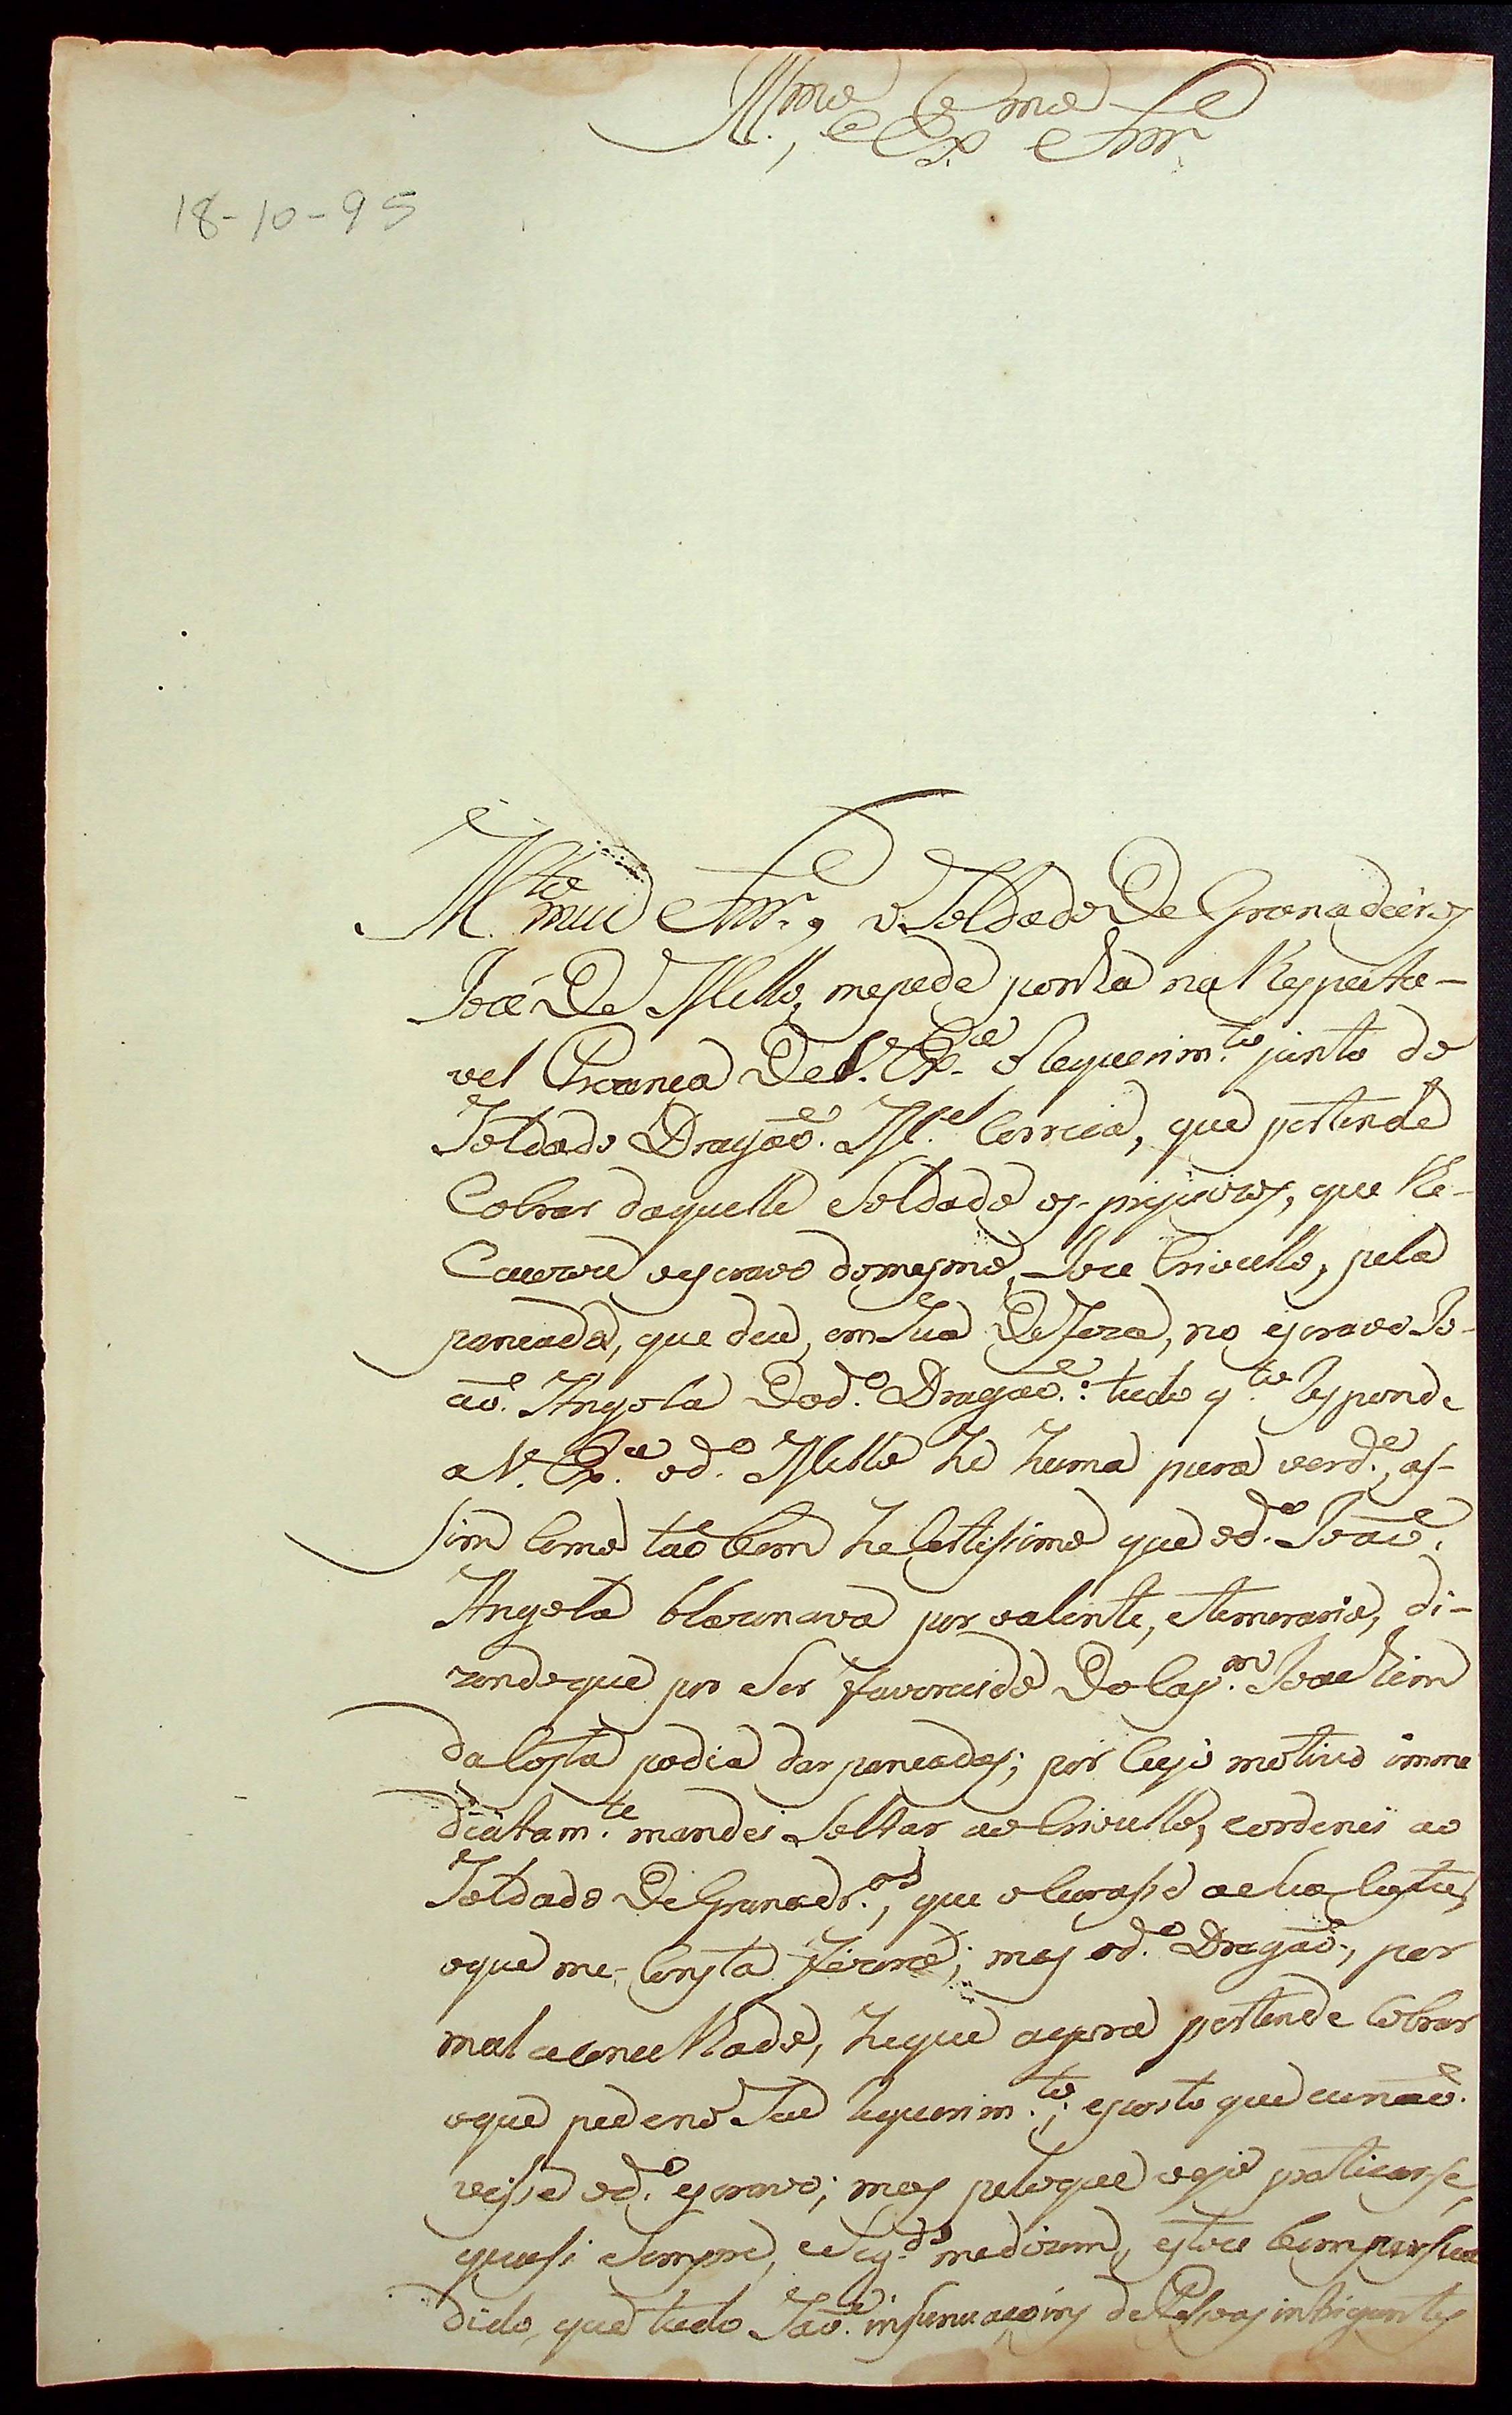 Ill.mo e Ex.mo Snr.
18-10-95
M.to meu Snr., o Soldado De Granadeiros
José De Mello, me pede ponha na Respeita-
vel Prezença De V. Ex.ca o Requerim.to junto do
Soldado Dragaõ M.el Correia, que pertende
Cobrar daquelle Soldado os prejuizos, que Re-
Cauzou o escravo do mesmo, Joze Crioullo, pela
pancada, que deu, em Sua Defeza, no escravo Jo-
aõ Angola Do d.o Dragaõ: tudo q.to Responde
a V. Ex.ca o d.o Mello he huma pura verd.e, as-
sim Como taõ bem he Certissimo que o d.o Joaõ
Angola blazonava por valente, e temerario, di-
zendo que por Ser favorecido Do Cap.am Joackim
da Costa podia dar pancadas; por Cujo motivo imme
diatam.te mandei Soltar ao Crioullo, e ordenei ao
Soldado De Granadr.os, que o Curasse a Sua Custa,
o que me Consta fizera; mas o d.o Dragaõ, por
mal aconcelhado, he que agora pertende Cobrar
o que pede no Seu Requerim.to; e posto que eu naõ
visse o d.o escravo; mas pelo que vejo praticarse,
quasi Sempre, e Seg.do me dizem, estou bem persua
dido, que tudo Saõ insinuaçoins de Pessoas intrigantes